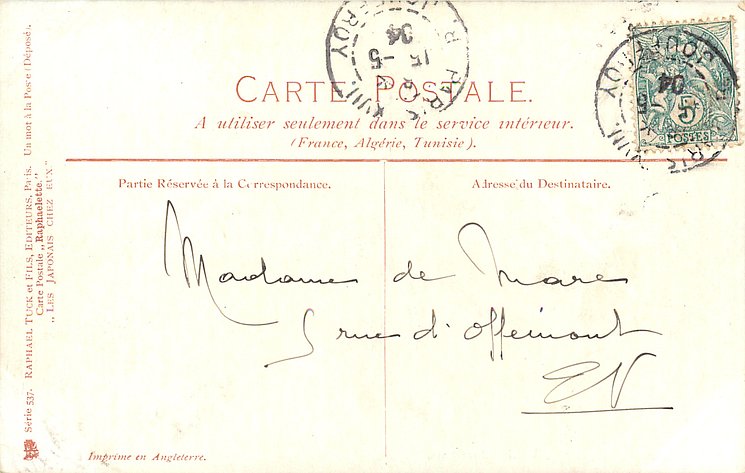 CARTE POSTALE.
A utiliser seulement dans le service intérieur.
(France, Algérie, Tunisie).
Partie Réservée à la Correspondance.
Adresse du Destinataire.
Madame de Mare
5 rue d'Offémont
EV
Imprimé en Angleterre.
Série 537. RAPHAEL TUCK et FILS, EDITEURS, PARIS. Un mot à la Poste (Déposé).
Carte Postale „Raphaelette"
„LES JAPONAIS CHEZ EUX"
PARIS XVIII
R. DUC
15 -5
04
5
POSTES
PARIS XVIII
04